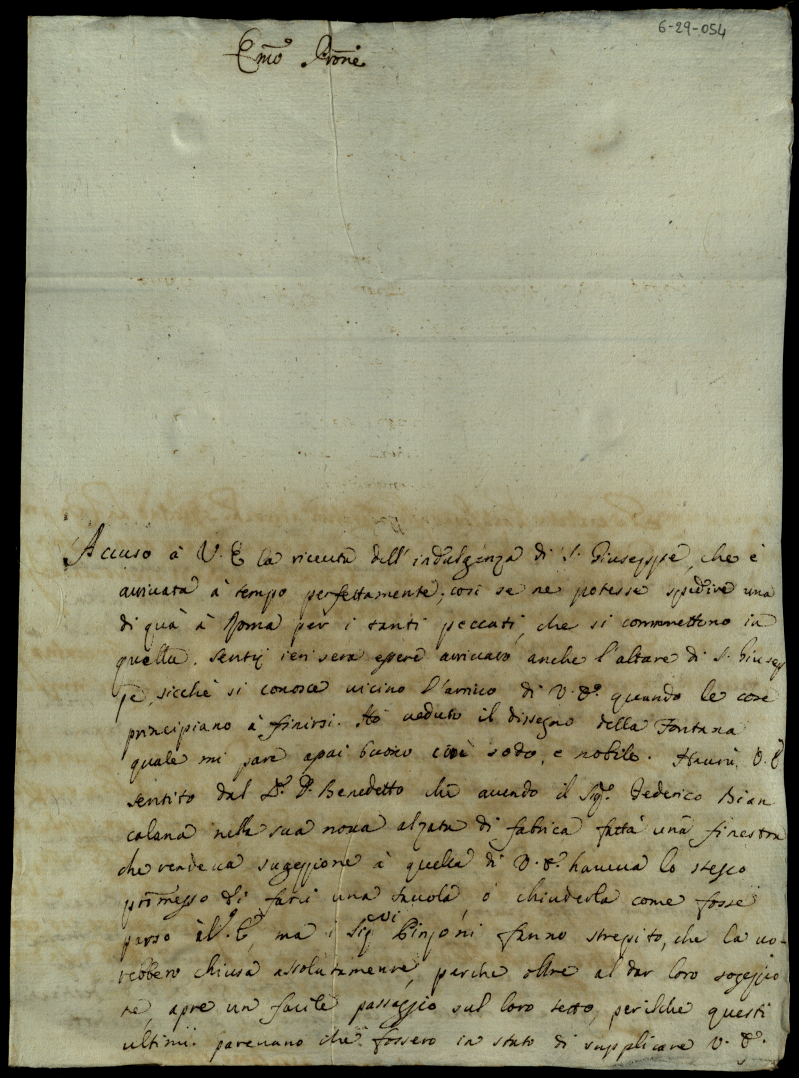 6-29-054
Emo Prone
Accuso à V. E la riceuta dell'indulgenza di S. Giuseppe, che è
arriuata à tempo perfettamente; così se ne potesse spedire una
di quà à Roma per i tanti peccati, che si commettono in
quella. Sentij ieri sera essere arriuato anche l'altare di S. Giusep
pe, sicchè si conosce uicino l'arriuo di V. E. quando le cose
principiano à finirsi. Hò ueduto il dissegno della Fontana
quale mi pare assai buono cioè sodo, e nobile. Haurà V. E
sentito dal P. Benedetto che auendo il Sigr. Federico Bian
colana nella sua noua alzata di fabrica fatta una finestra
che rendeua sugezzione à quella di V. E. haueua lo stesso
promesso di farci una tauola ò chiuderla come fosse
parso à V. E, ma i Sigri Pinzoni fanno strepito, che la uo-
rebbero chiusa assolutamente, perche oltre al dar loro sogezzio
ne, apre un facile passaggio sul loro tetto, perilche questi
ultimi pareuano che fossero in stato di supplicare V. E.